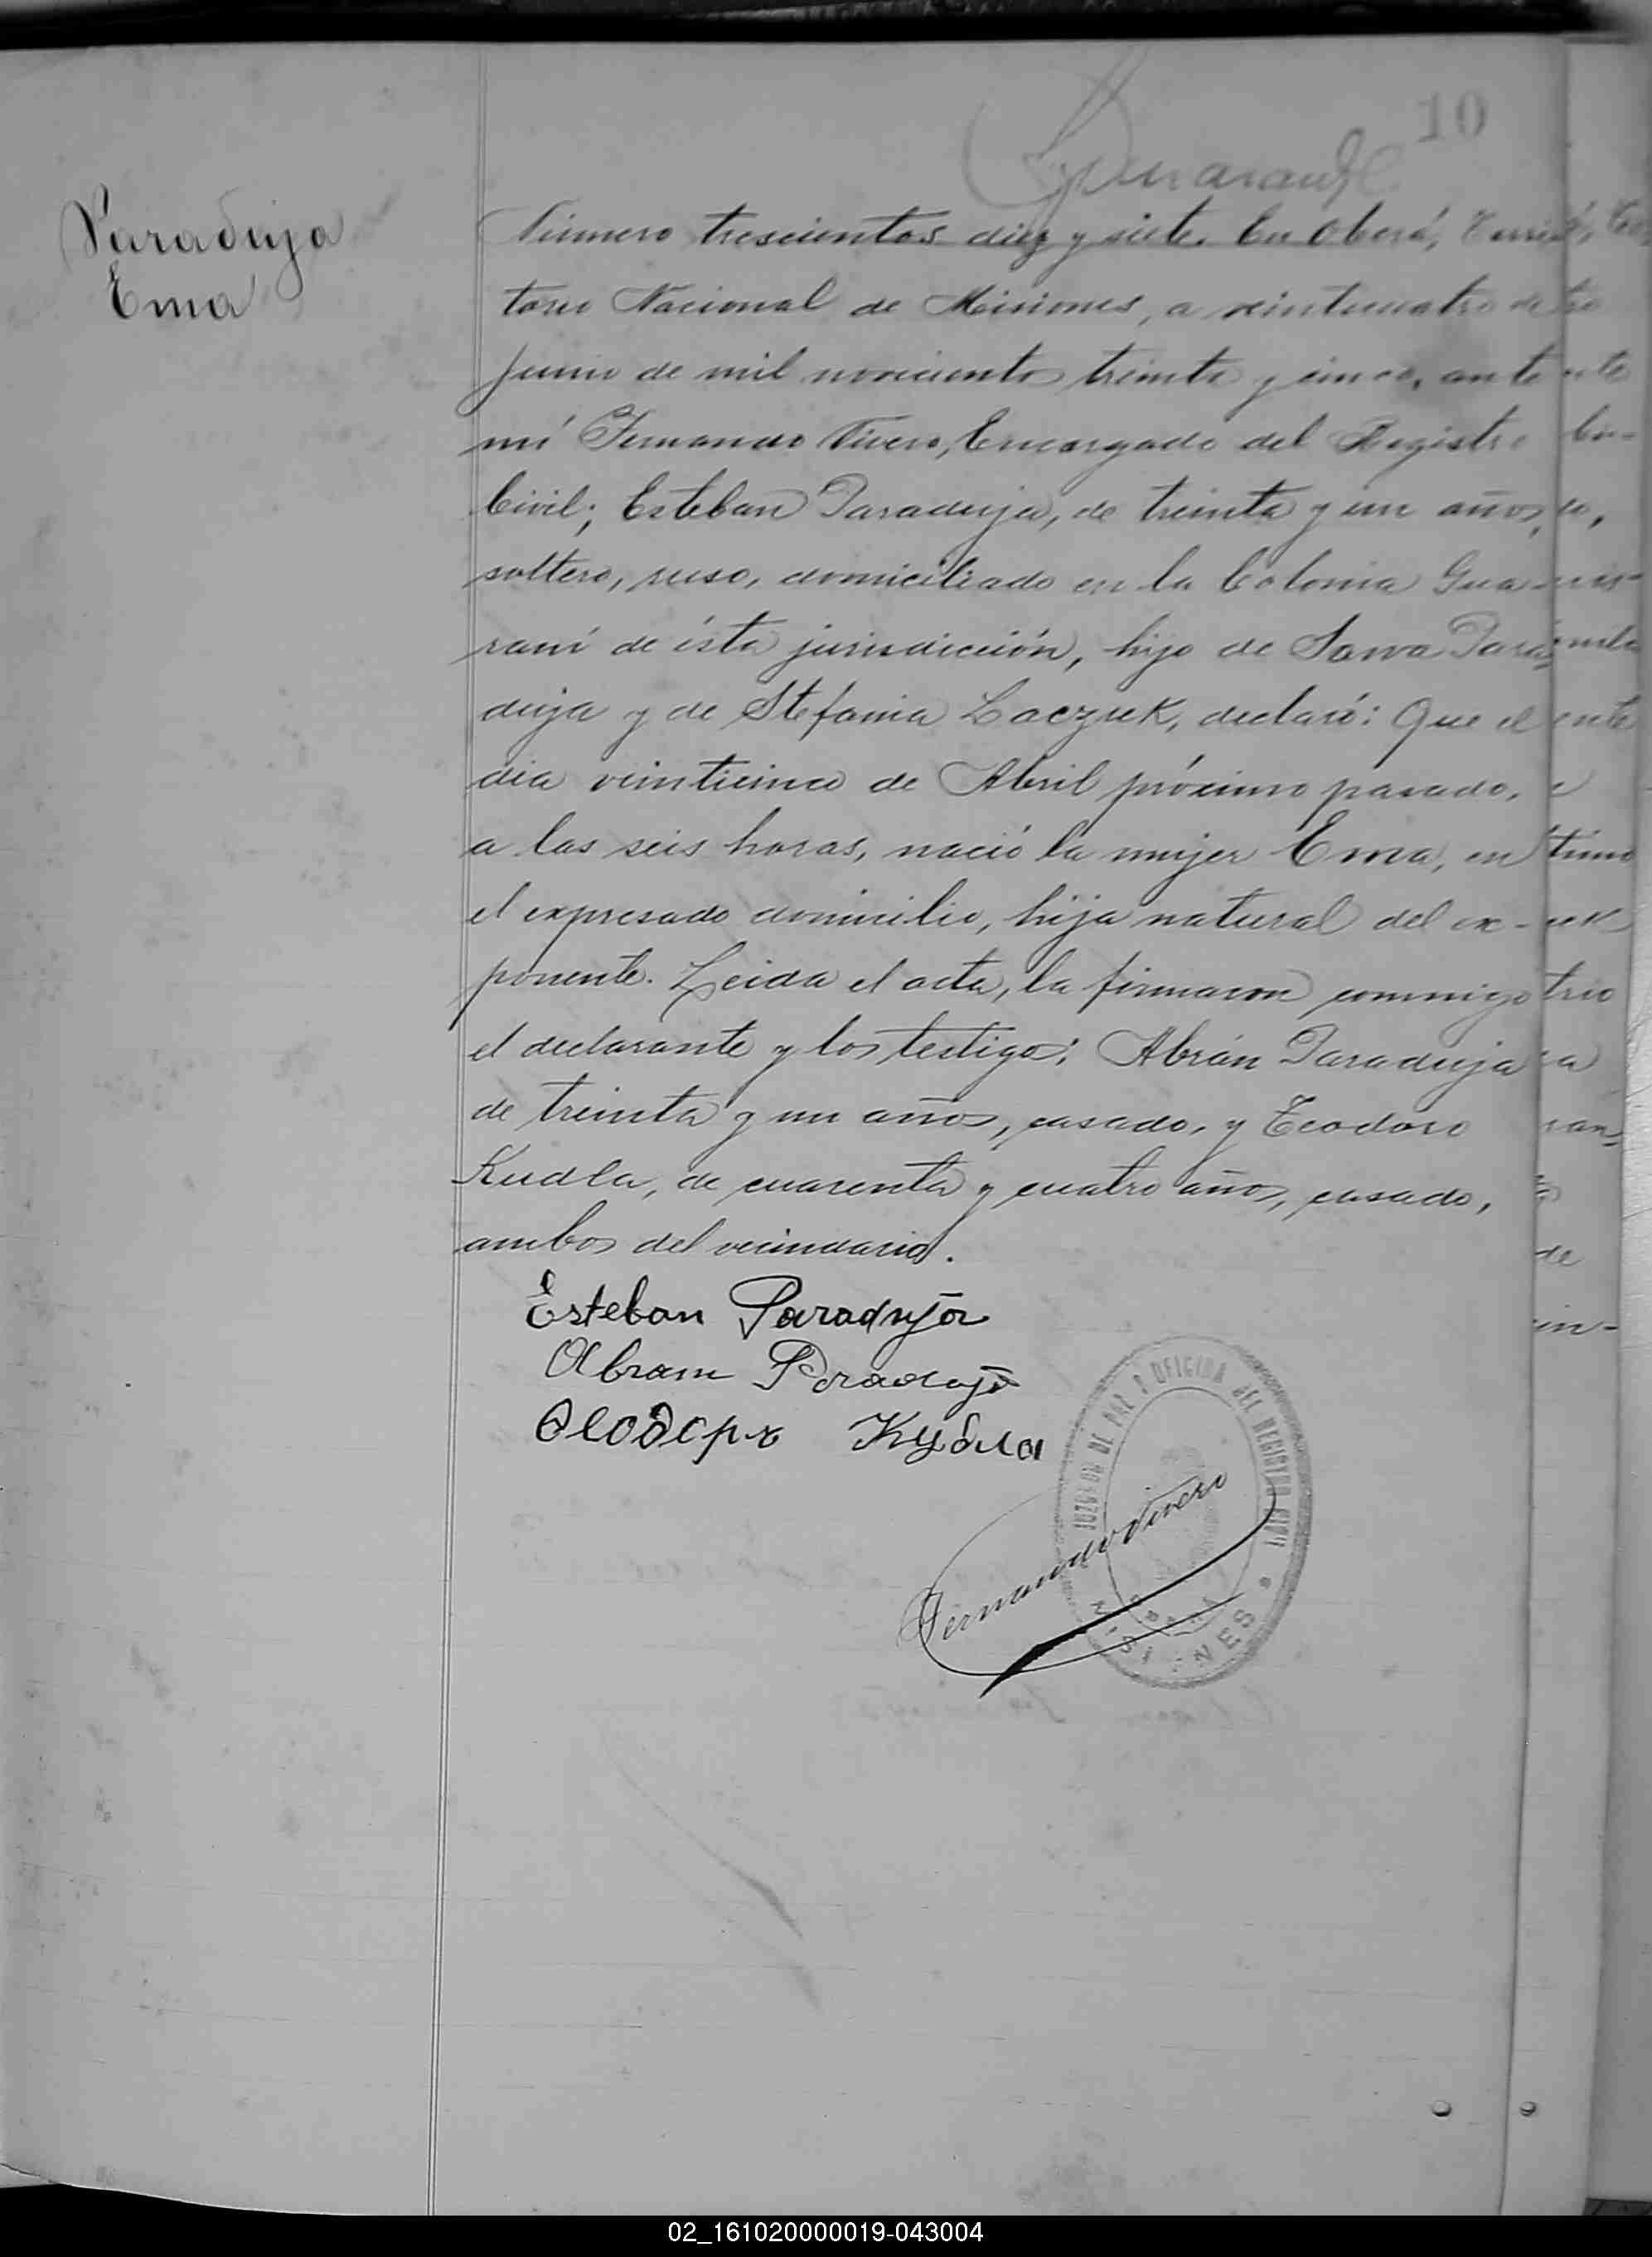 10
Paraduja
Ema
Número trescientos diez y siete. En Oberá, Terri-
torio Nacional de Misiones, a veinticuatro de
Junio de mil novecientos treinta y cinco, ante
mí Fernando Vivero, Encargado del Registro
Civil; Esteban Paraduja, de treinta y un años,
soltero, ruso, domiciliado en la Colonia Gua-
raní de ésta jurisdicción, hijo de Sawa Para-
duja y de Stefania Laczuk, declaró: Que el
día veinticinco de Abril próximo pasado,
a las seis horas, nació la mujer Ema, en
el expresado domicilio, hija natural del ex-
ponente. Leída el acta, la firmaron conmigo
el declarante y los testigos: Abrán Paraduja
de treinta y un años, casado, y Teodoro
Kudla, de cuarenta y cuatro años, casado,
ambos del vecindario.
Esteban Paraduja
Abram Paraduja
Ѳеодоръ Кудла
JUZGADO DE PAZ Y OFICINA DEL REGISTRO CIVIL
OBERA
MISIONES
Fernando Vivero
02_161020000019-043004